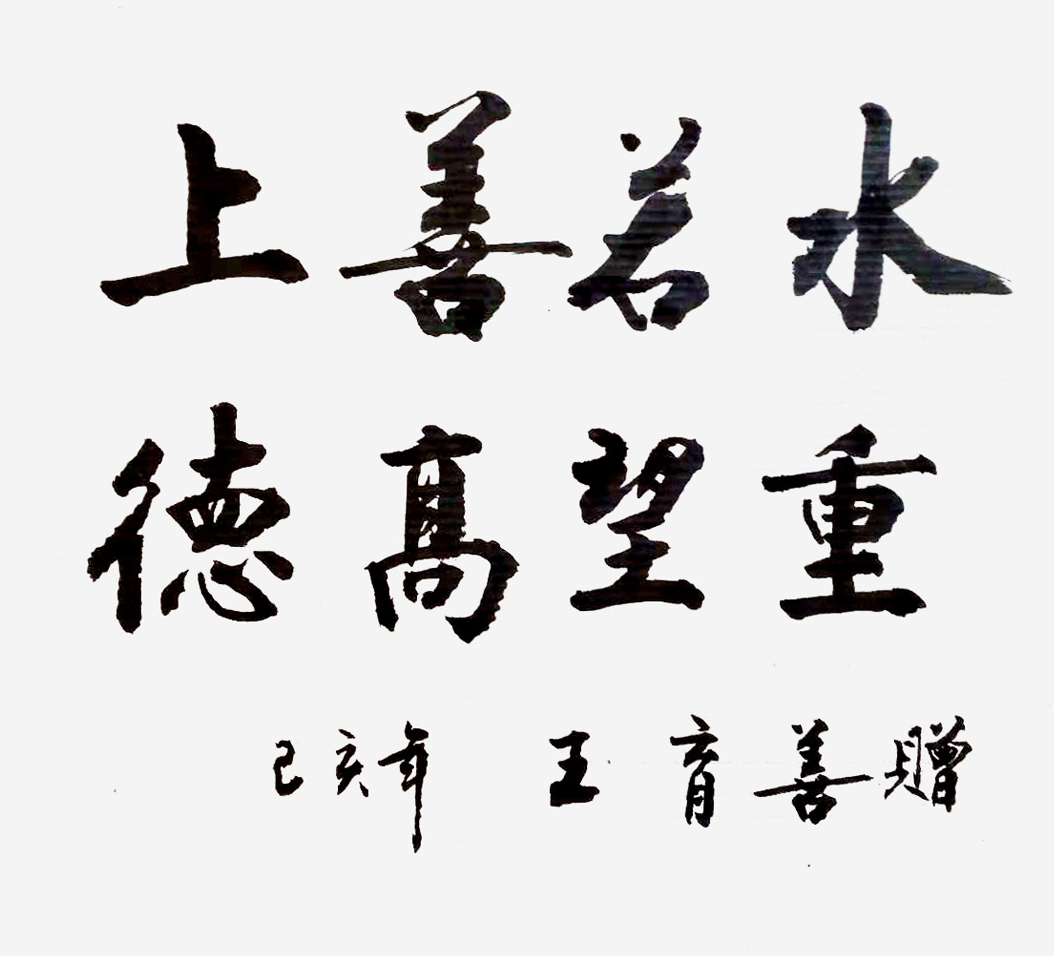 上善若水
德高望重
己亥年 王育善贈